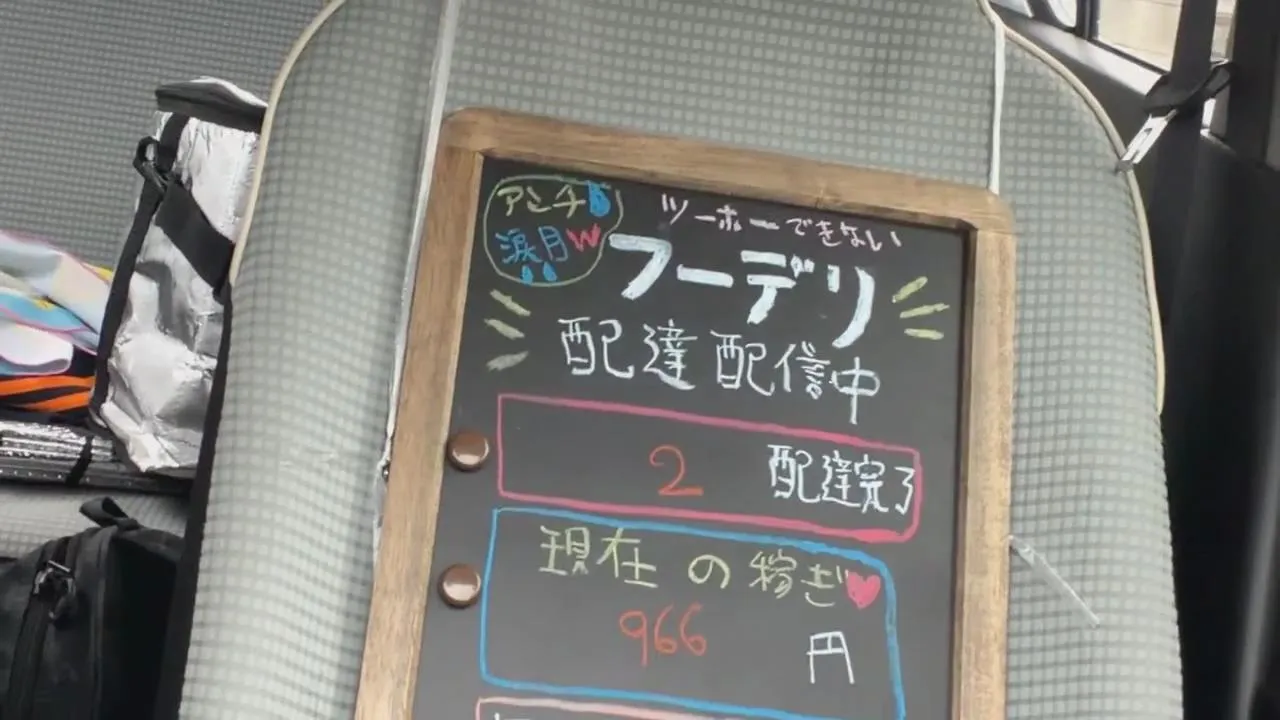 アンチ
涙月w
ツーホーできない
フーデリ
配達配信中
2 配達完了
現在の稼ぎ
966 円